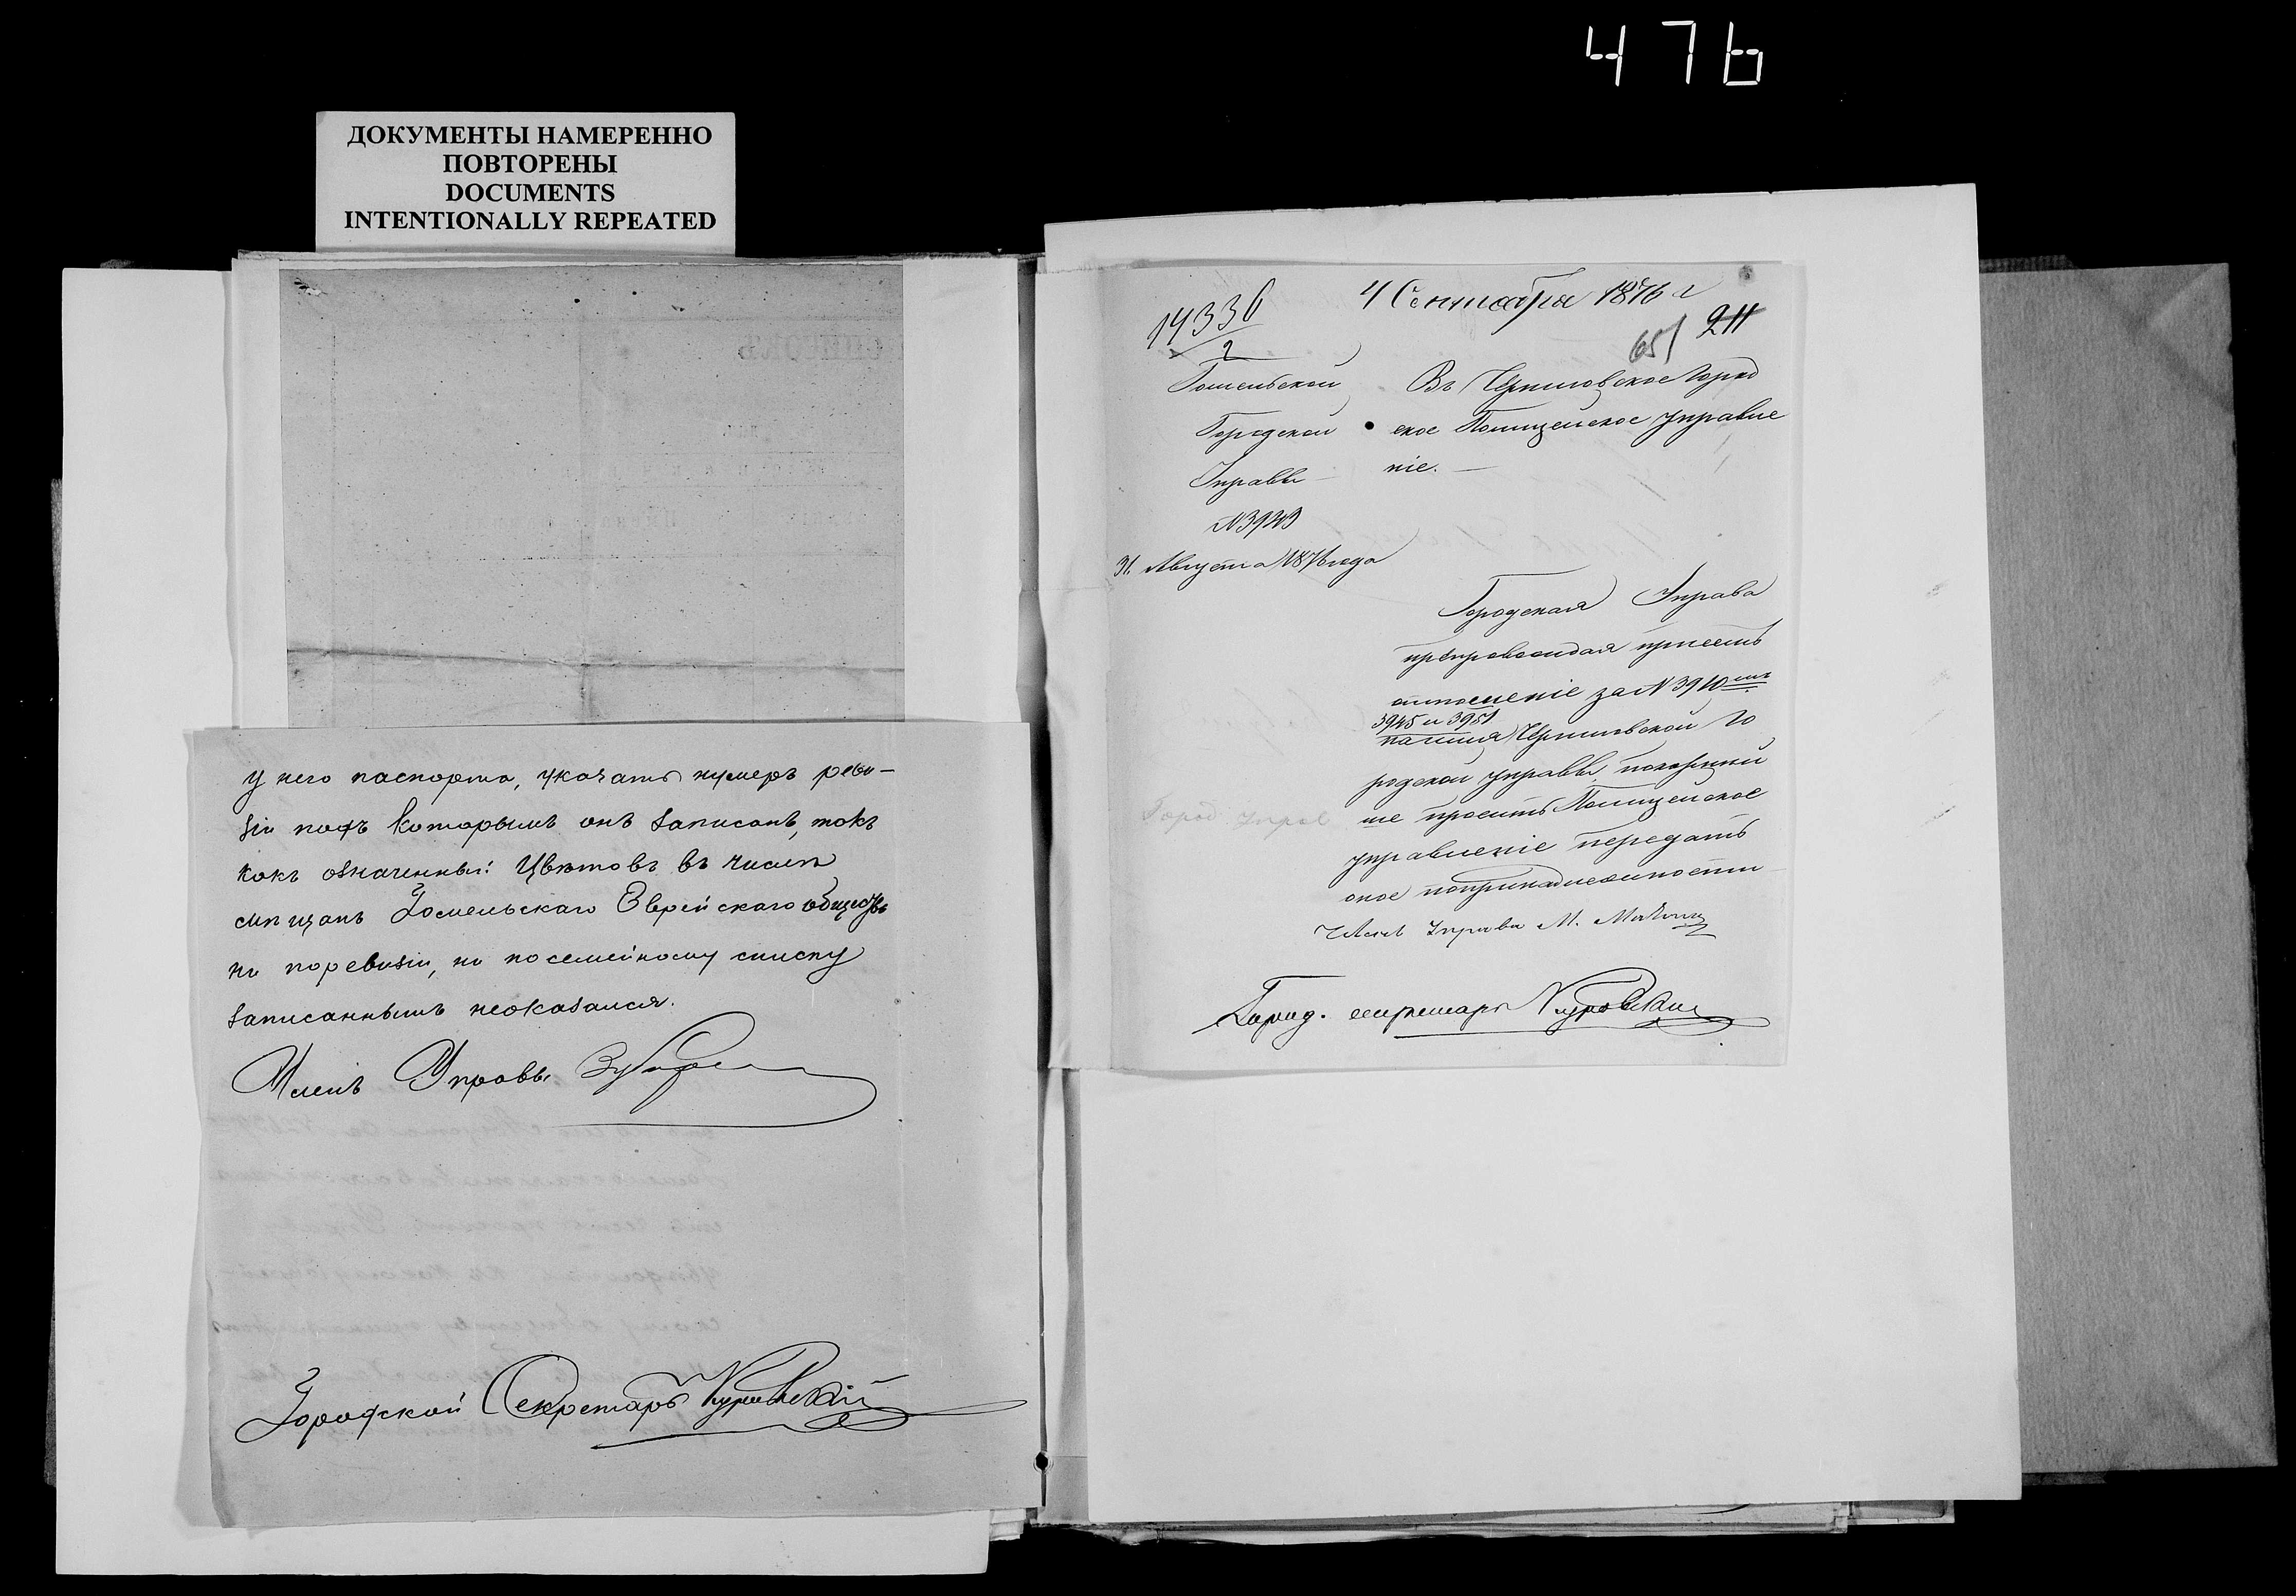 476
ДОКУМЕНТЫ НАМЕРЕННО
ПОВТОРЕНЫ
DOCUMENTS
INTENTIONALLY REPEATED
у него паспорта, указать нумеръ реви-
зіи подъ которымъ онъ записанъ, такъ
какъ означенный Цвѣтовъ въ числѣ
мѣщанъ Гомельскаго Еврейскаго общества
ни поревизіи, ни посемейному списку
записаннымъ неоказался.
Членъ Управы
Городской Секретарь Куровскій
4 Сентября 1876 г
14336
2
651 211
Гомельской
Городской
Управы
31 Августа 1876 года
Въ Черниговское Город
ское Полицейское Управле
ніе.
Городская Управа
препровождая присемъ
отношеніе за № 3940
3945 и 3951
на имя Черниговской Го
родской Управы, покорнѣй
ше проситъ Полицейское
управленіе передать
оное попринадлежности
Город управ
Членъ Управы М.
Город. секретарь Куровскій